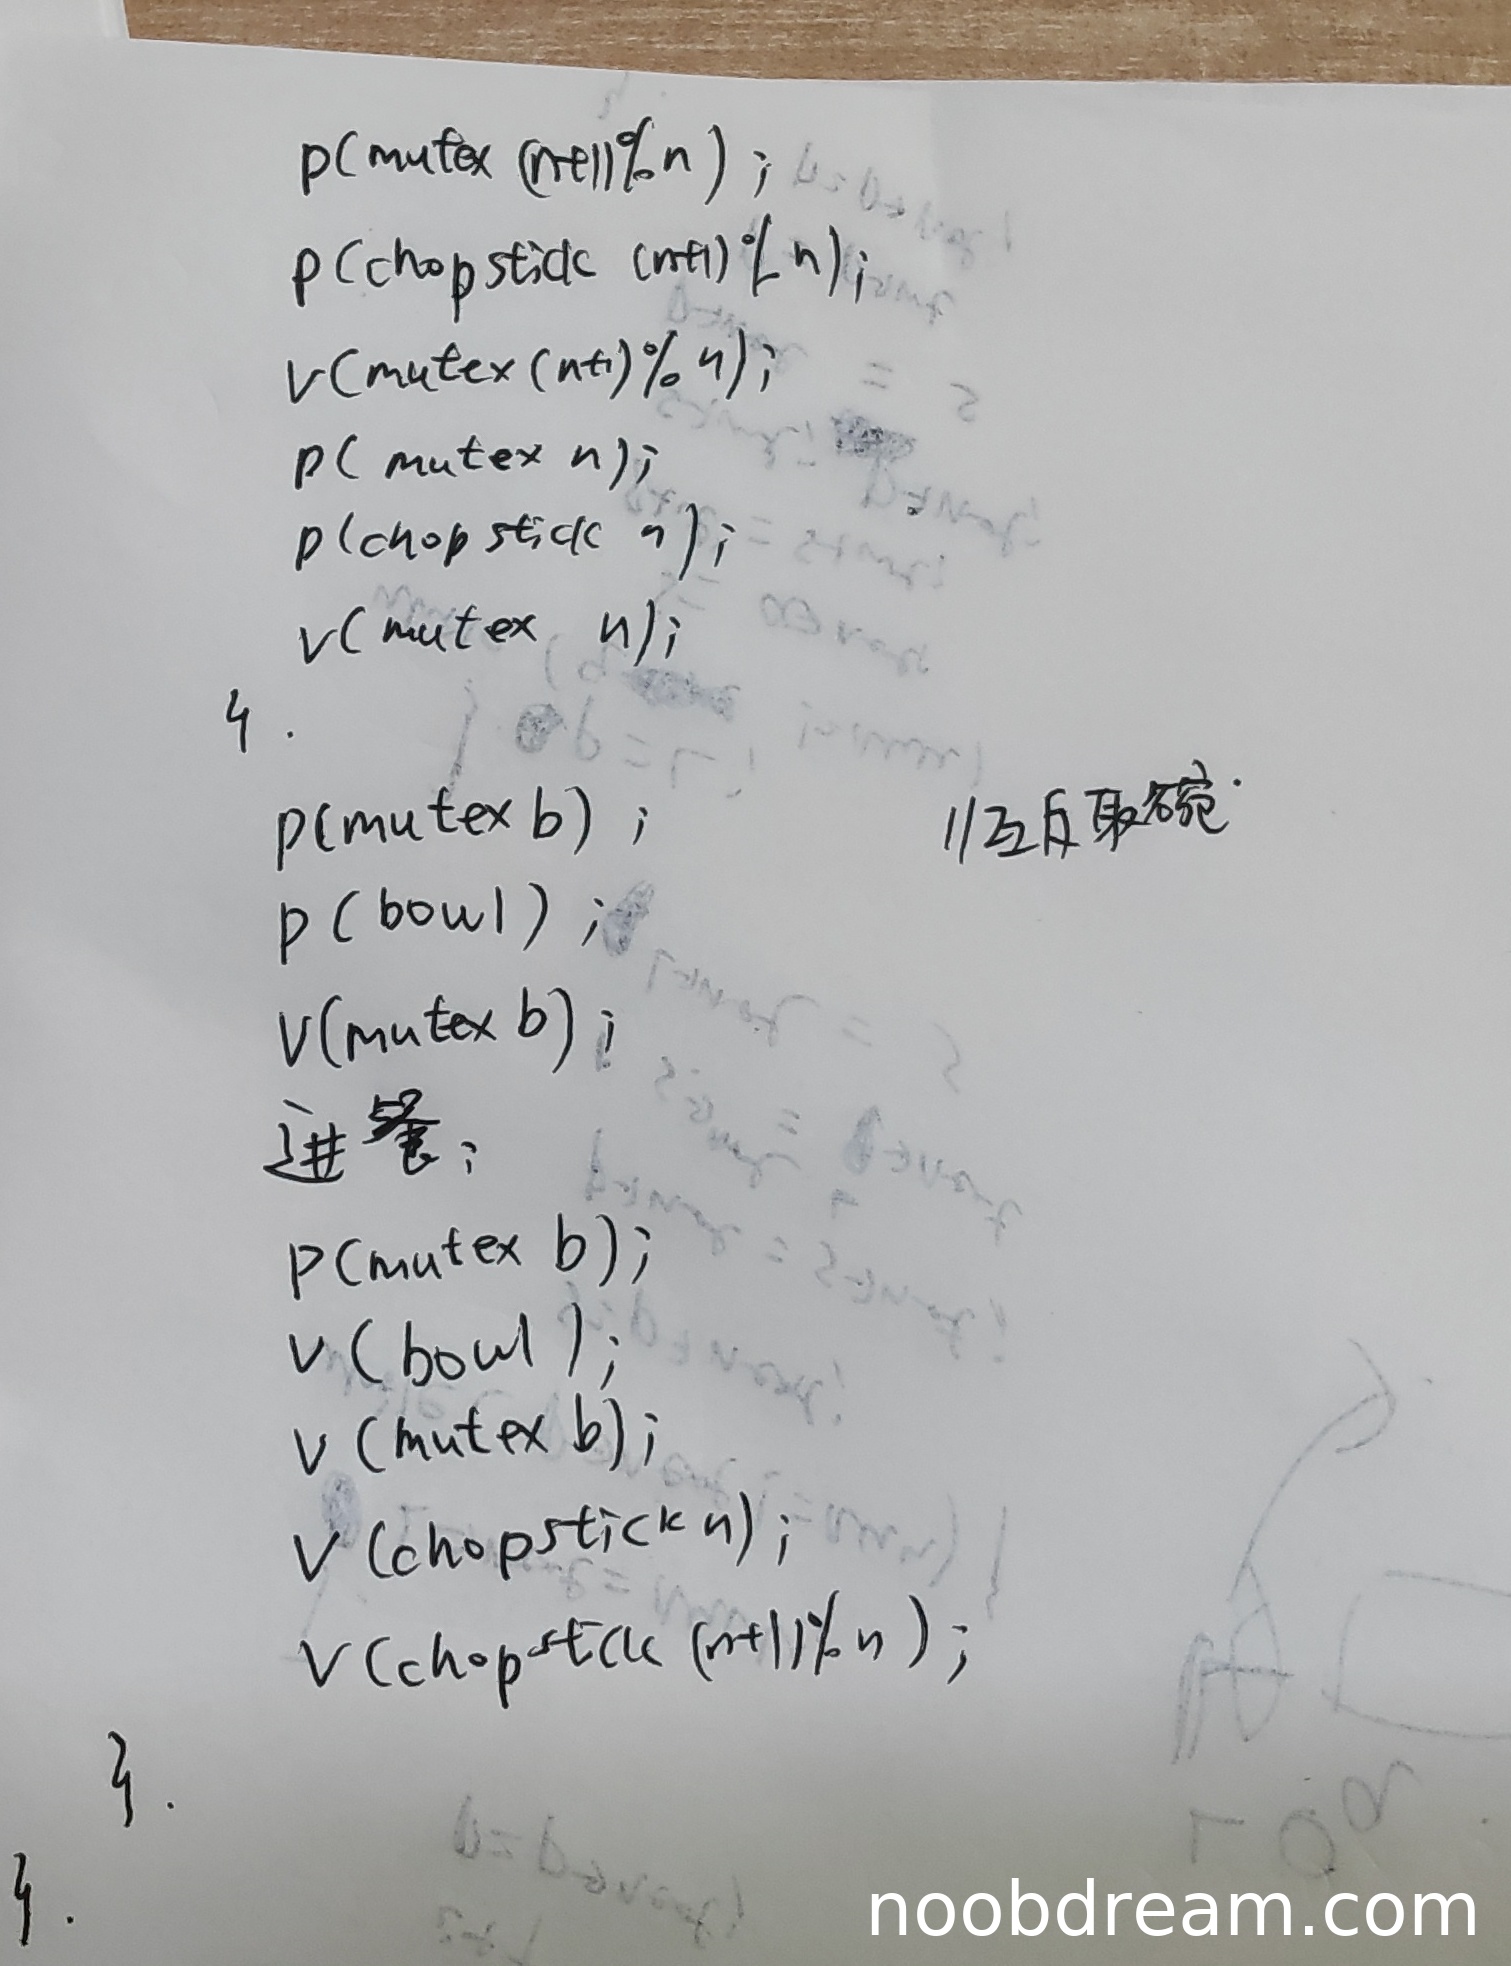 p(mutex (n+1)%n);
p(chopstick (n+1)%n);
v(mutex (n+1)%n);
p(mutex n);
p(chopstick n);
v(mutex n);
}.
p(mutex b); //互斥取碗.
p(bowl);
v(mutex b);
进餐;
p(mutex b);
v(bowl);
v(mutex b);
v(chopstick n);
v(chopstick (n+1)%n);
}.
}.
noobdream.com